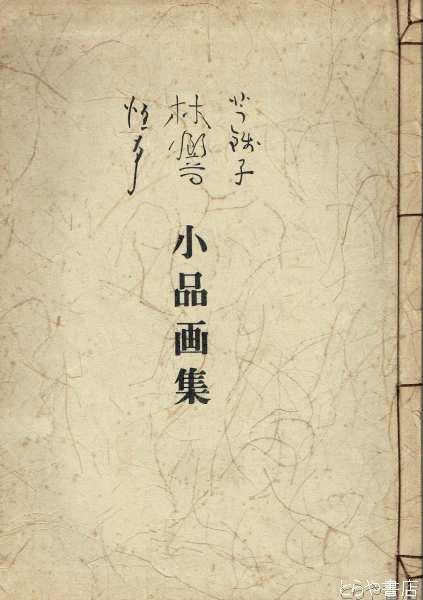 芋銭子
林響
恒友
小品画集
とらや書店